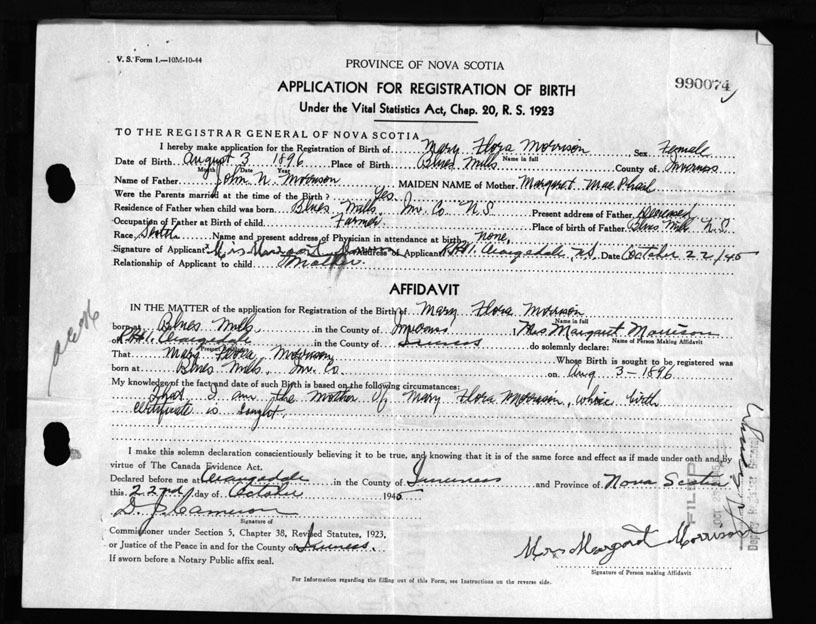 V. S. Form 1.—10M-10-44
PROVINCE OF NOVA SCOTIA
990074
APPLICATION FOR REGISTRATION OF BIRTH
Under the Vital Statistics Act, Chap. 20, R. S. 1923
TO THE REGISTRAR GENERAL OF NOVA SCOTIA
I hereby make application for the Registration of Birth of Mary Flora Morrison Sex Female
Name in full
Date of Birth August 3 1896 Place of Birth Blues Mills County of Inverness
Month Date Year
Name of Father John N. Morrison MAIDEN NAME of Mother Margaret MacPhail
Were the Parents married at the time of the Birth? Yes.
Residence of Father when child was born Blues Mills, Inv. Co N.S Present address of Father Deceased
Occupation of Father at Birth of child Farmer Place of birth of Father Blues Mills N.S.
Race Scotch Name and present address of Physician in attendance at birth none.
Signature of Applicant Mrs Margaret Morrison Address of Applicant R.R.1. Orangedale, N.S. Date October 22/45
Relationship of Applicant to child Mother.
AFFIDAVIT
IN THE MATTER of the application for Registration of the Birth of Mary Flora Morrison
Name in full
born at Blues Mills in the County of Inverness, Mrs Margaret Morrison
Name of Person Making Affidavit
of R.R.1. Orangedale in the County of Inverness do solemnly declare:
Present Address
That Mary Flora Morrison Whose Birth is sought to be registered was
born at Blues Mills, Inv. Co. on Aug 3-1896
My knowledge of the fact and date of such Birth is based on the following circumstances:
That I am the mother of Mary Flora Morrison, whose birth
certificate is sought.
I make this solemn declaration conscientiously believing it to be true, and knowing that it is of the same force and effect as if made under oath and by
virtue of The Canada Evidence Act.
Declared before me at Orangedale in the County of Inverness and Province of Nova Scotia
this 22nd day of October 1945
D. J. Cameron
Signature of
Commissioner under Section 5, Chapter 38, Revised Statutes, 1923,
or Justice of the Peace in and for the County of Inverness.
If sworn before a Notary Public affix seal.
Mrs Margaret Morrison
Signature of Person making Affidavit
For Information regarding the filling out of this Form, see Instructions on the reverse side.
FILED